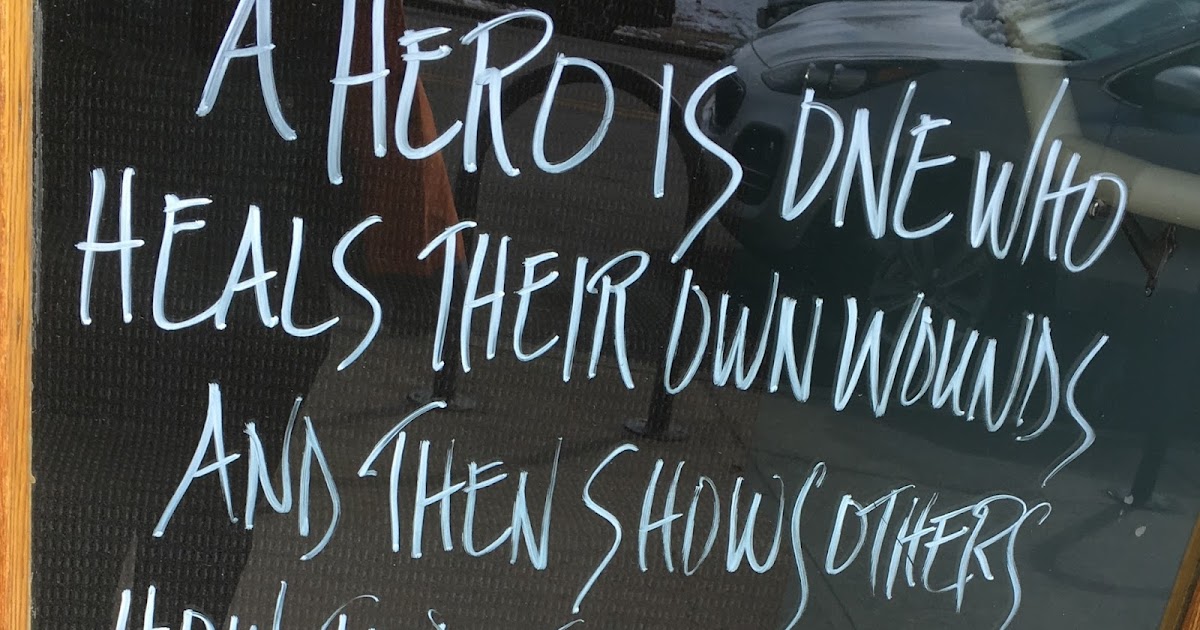 A HERO IS ONE WHO
HEALS THEIR OWN WOUNDS
AND THEN SHOWS OTHERS
HOW